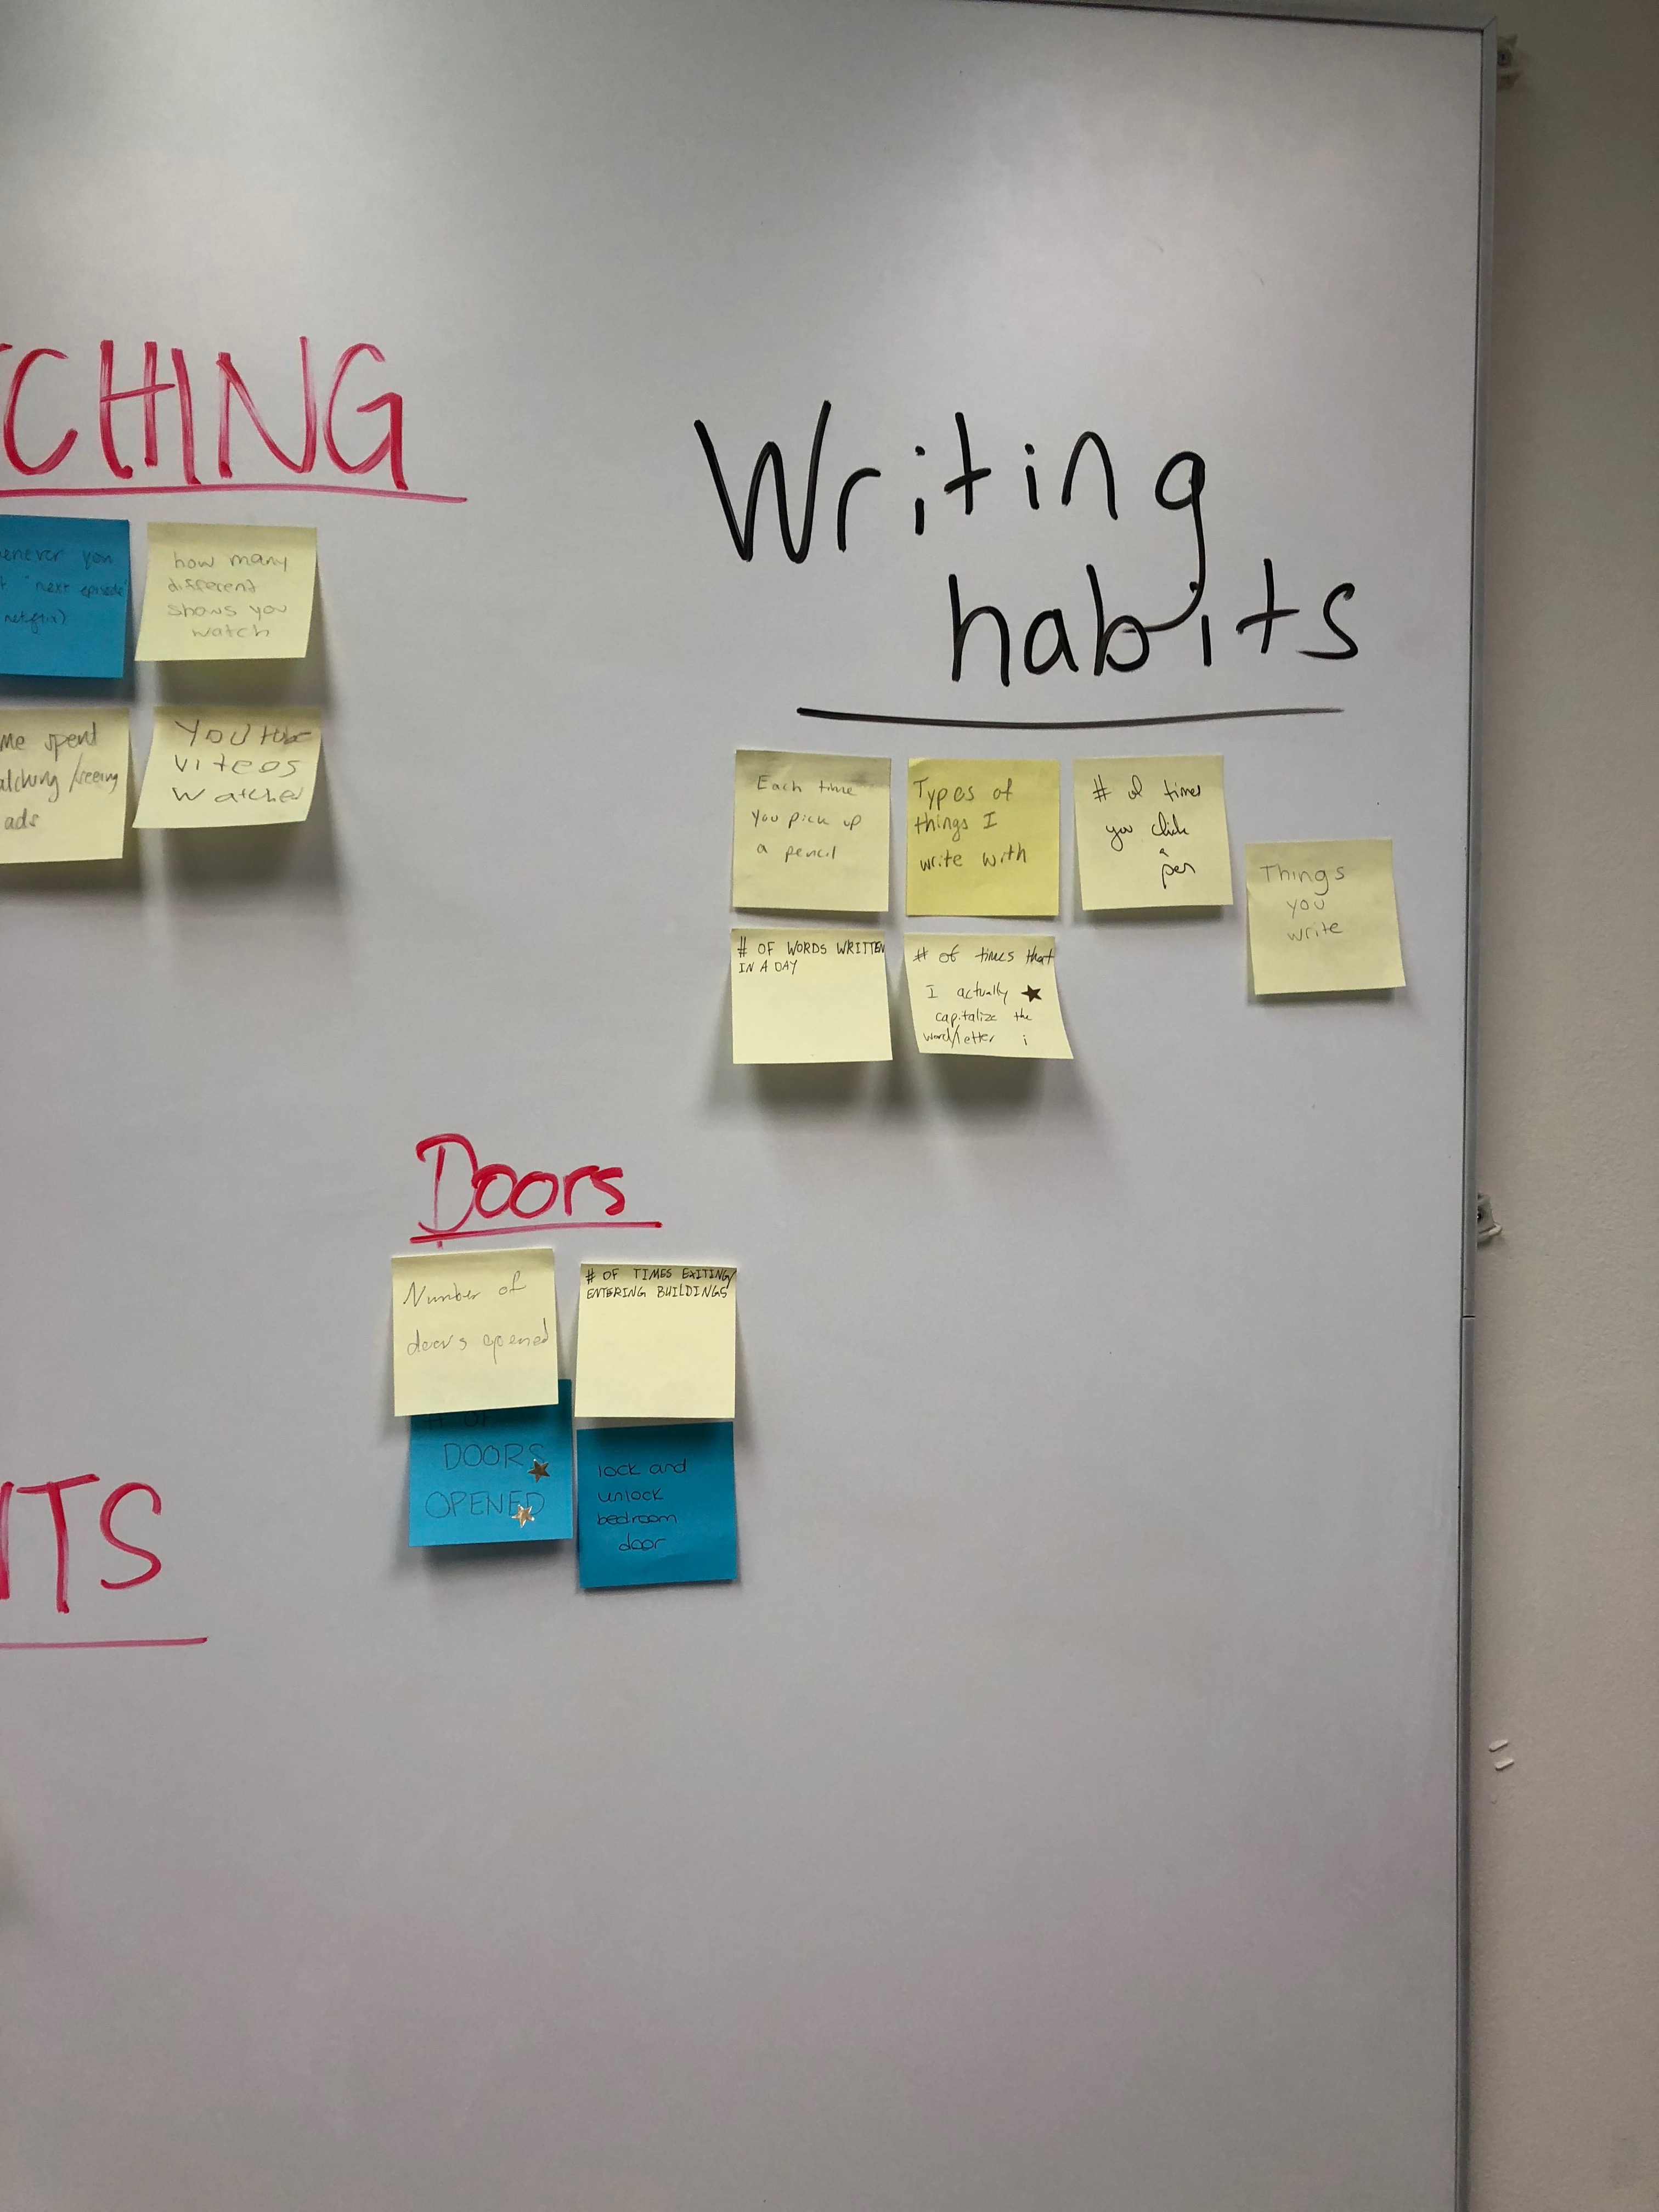 CHING
enever you
"next episode"
netflix)
how many
different
shows you
watch
me spent
atching/seeing
ads
YouTube
viteos
watched
Writing
habits
Each time
you pick up
a pencil
Types of
things I
write with
# of times
you click
a
pen
Things
you
write
# OF WORDS WRITTEN
IN A DAY
# of times that
I actually
capitalize the
word/letter i
Doors
Number of
doors opened
# OF TIMES EXITING/
ENTERING BUILDINGS
# OF
DOORS
OPENED
lock and
unlock
bedroom
door
ITS